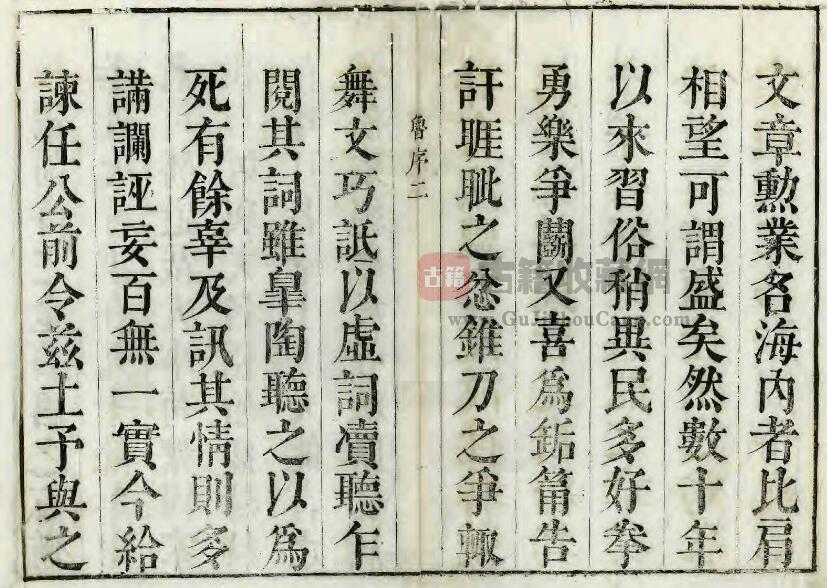 文章勲業名海內者比肩
相望可謂盛矣然數十年
以來習俗稍異民多好拳
勇樂爭鬬又喜爲缿筩告
訐睚眦之忿錐刀之爭輙
魯序二
舞文巧詆以虛詞凟聽乍
閱其詞雖臯陶聽之以爲
死有餘辜及訊其情則多
讕誣妄百無一實今給
諫任公前令茲土予與之
古籍
古籍收藏網
www.GuJiShouCang.com